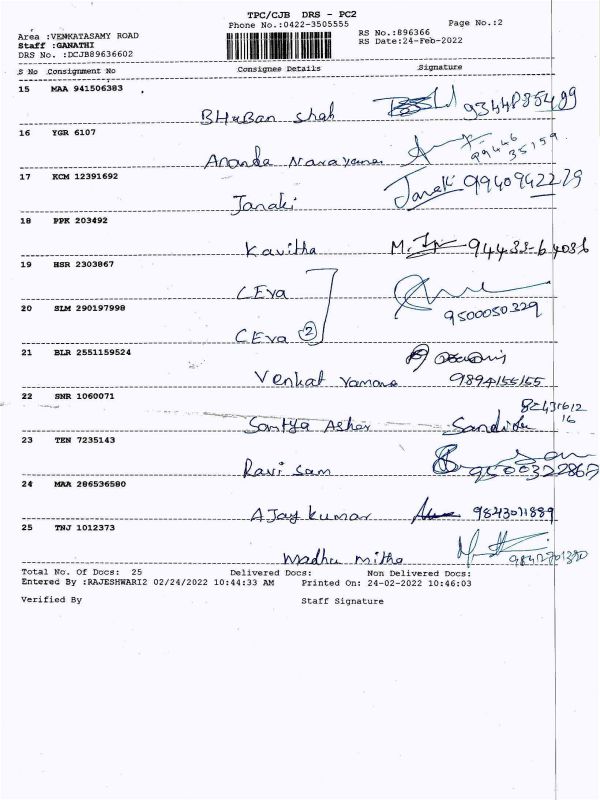 TPC/CJB DRS - PC2
Phone No.:0422-3505555
Page No.:2
Area :VENKATASAMY ROAD
RS No.:896366
Staff :GANATHI
RS Date:24-Feb-2022
DRS No. :DCJB89636602
S No Consignment No Consignee Details Signature
15 MAA 941506383
Bhuban Shah
16 YGR 6107
Ananda Narayanan 99446
35159
17 KCM 12391692
Janaki Janaki 9940942279
18 PPK 203492
Kavitha 94433-64036
19 HSR 2303867
CEva
20 SLM 290197998
9500050329
CEva 2
21 BLR 2551159524
Venkat Ramana 9894155155
22 SNR 1060071
16
23 TEN 7235143
Ravi Sam
24 MAA 286536580
AJay kumar 9843071889
25 TNJ 1012373
Madhu mitha
Total No. Of Docs: 25 Delivered Docs: Non Delivered Docs:
Entered By :RAJESHWARI2 02/24/2022 10:44:33 AM Printed On: 24-02-2022 10:46:03
Verified By Staff Signature